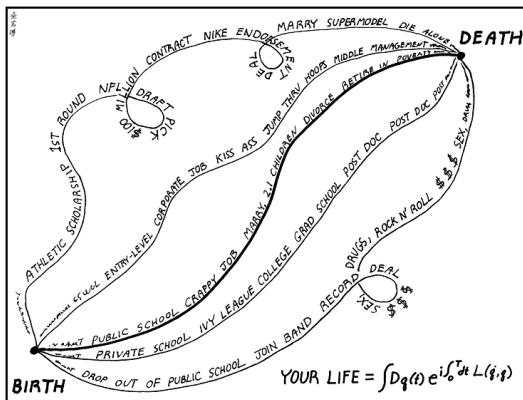 ATHLETIC SCHOLARSHIP 1ST ROUND NFL DRAFT PICK $100 MILLION CONTRACT NIKE ENDORSEMENT DEAL MARRY SUPERMODEL DIE ALONE
DEATH
ENTRY-LEVEL CORPORATE JOB KISS ASS JUMP THRU HOOPS MIDDLE MANAGEMENT
PUBLIC SCHOOL CRAPPY JOB MARRY, 2.1 CHILDREN DIVORCE RETIRE IN POVERTY
PRIVATE SCHOOL IVY LEAGUE COLLEGE GRAD SCHOOL POST DOC POST DOC POST
DROP OUT OF PUBLIC SCHOOL JOIN BAND RECORD DEAL $$ $$ SEX, DRUGS, ROCK N' ROLL $ $ $ SEX,
BIRTH
YOUR LIFE = ∫Dq(t) e^{i∫₀ᵀdt L(q̇,q)}